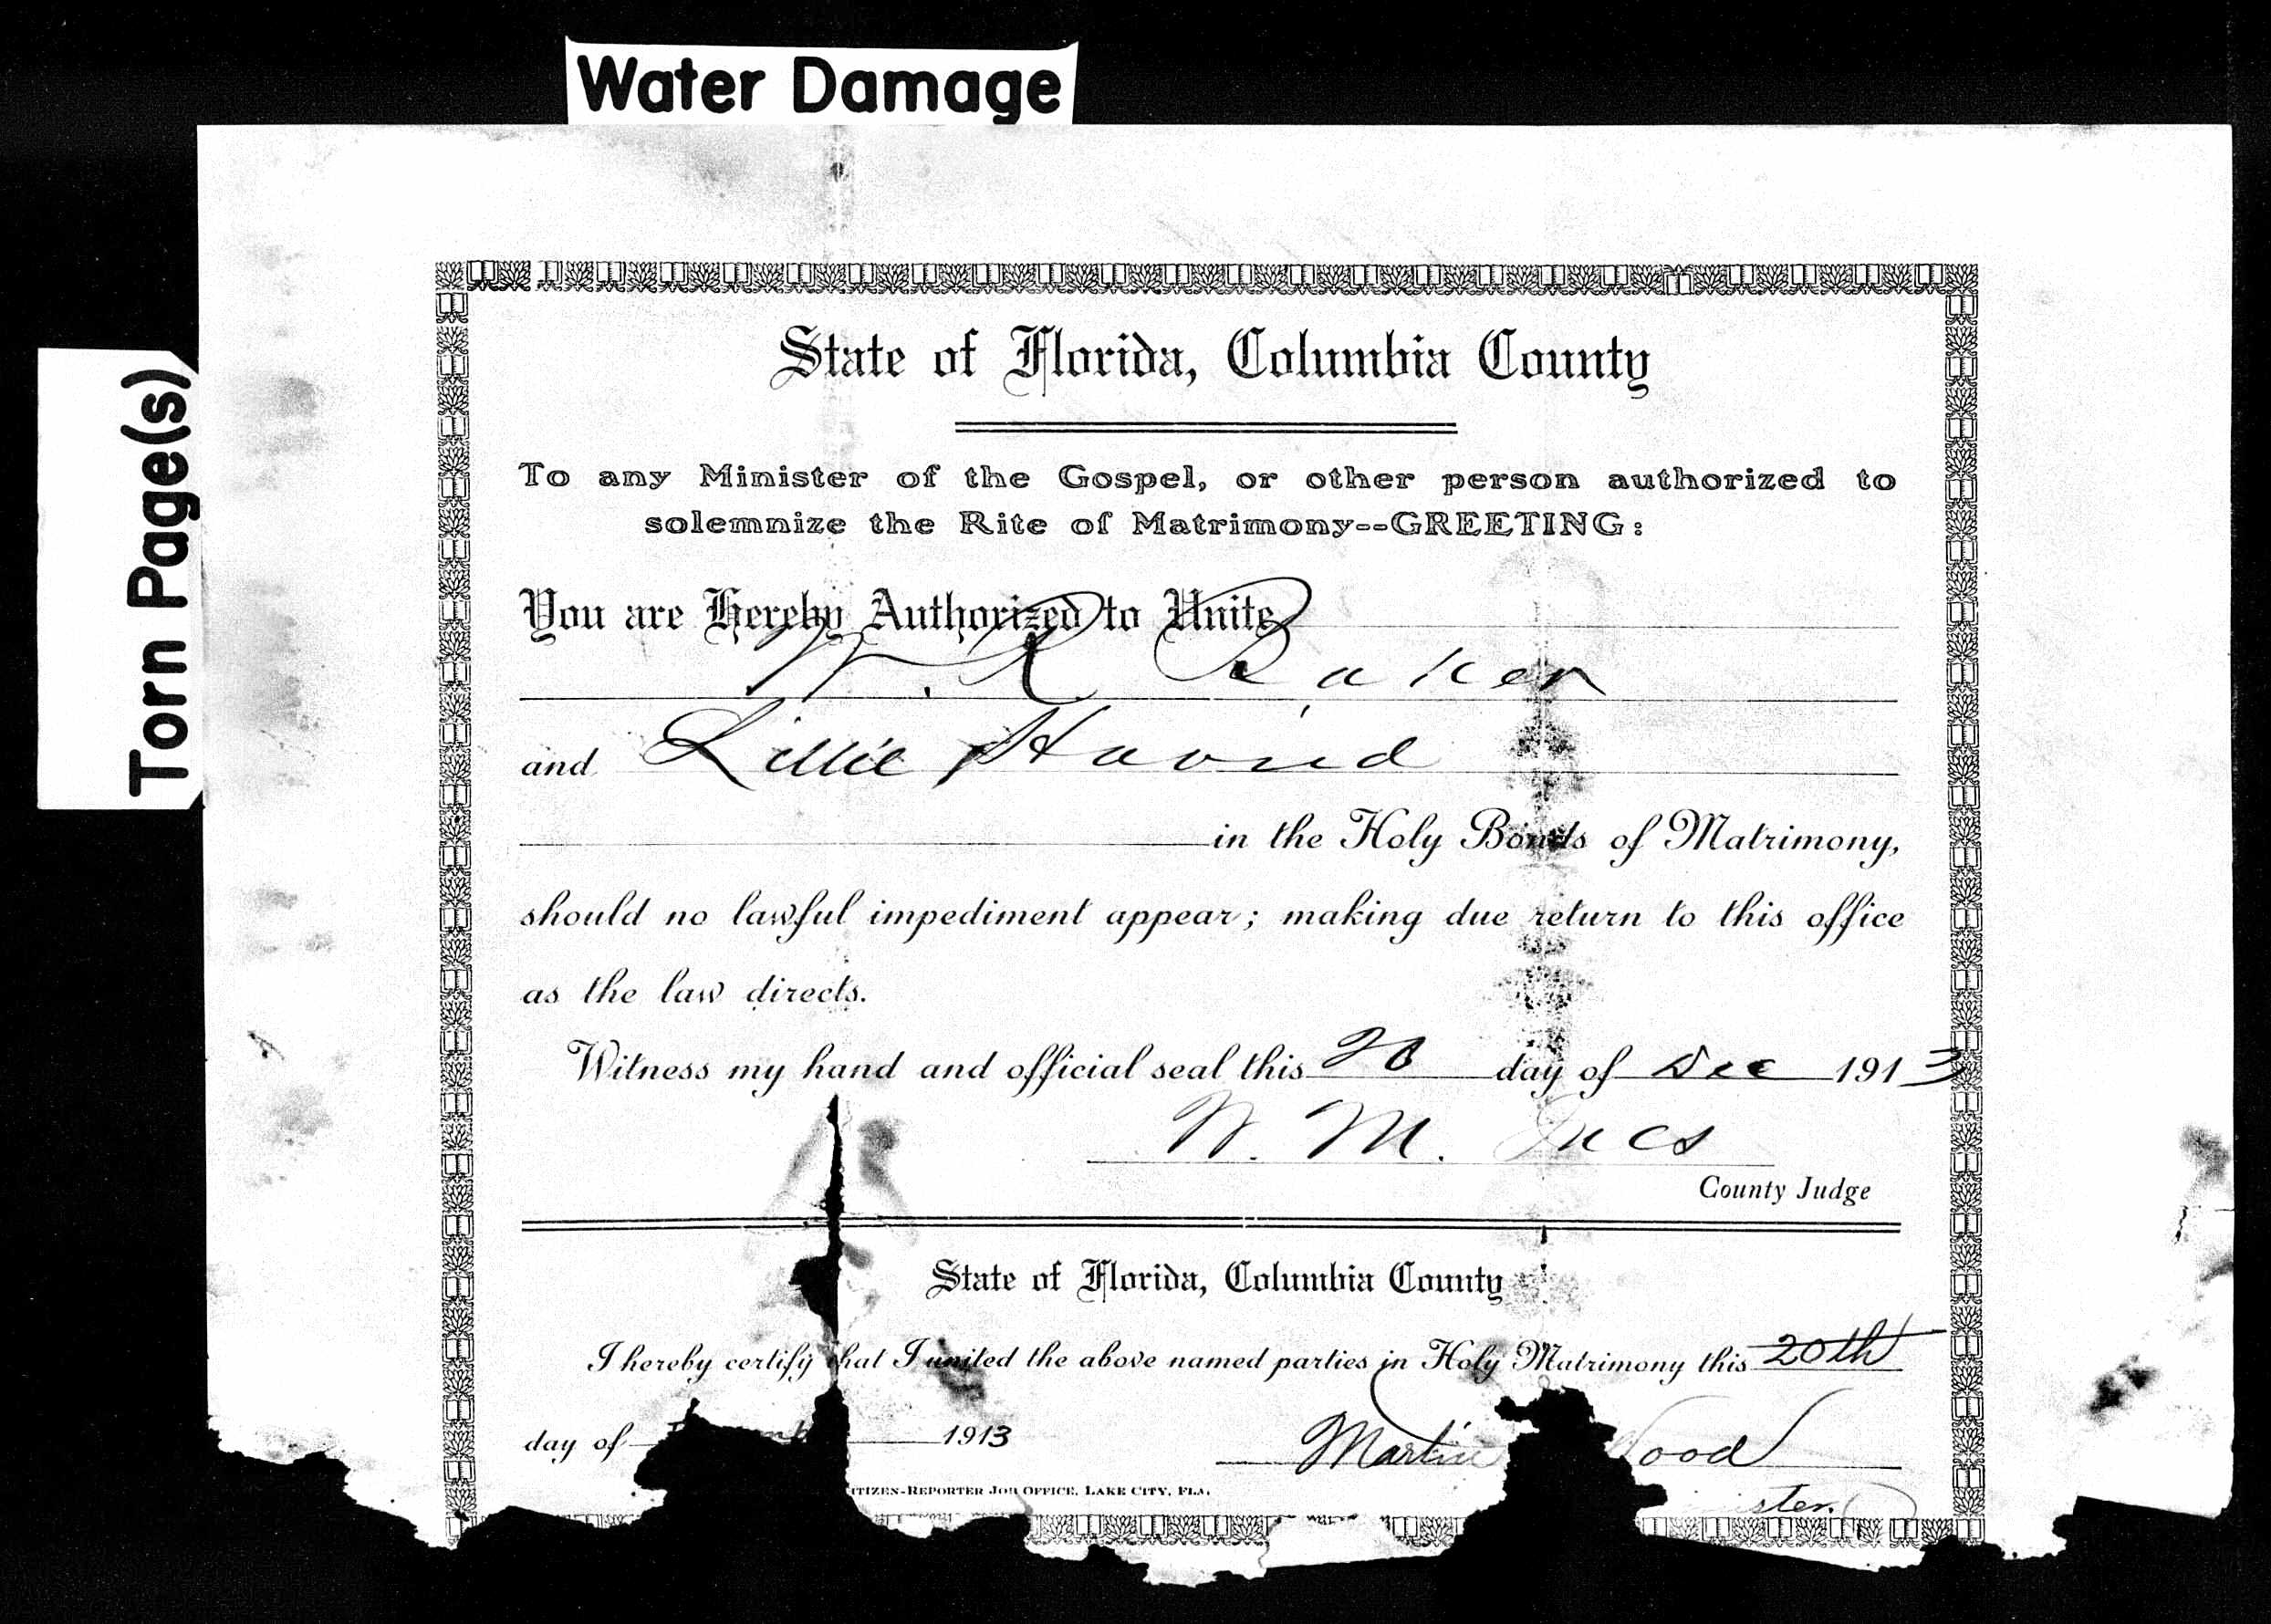 Water Damage
Torn Page(s)
State of Florida, Columbia County
To any Minister of the Gospel, or other person authorized to
solemnize the Rite of Matrimony--GREETING:
You are Hereby Authorized to Unite
W. R. Baker
and Lillie
in the Holy Bonds of Matrimony,
should no lawful impediment appear; making due return to this office
as the law directs.
Witness my hand and official seal this 20 day of Dec 1913
W. M. Ives
County Judge
State of Florida, Columbia County
I hereby certify that I united the above named parties in Holy Matrimony this 20th
day of 1913 Martin
-REPORTER JOB OFFICE, LAKE CITY, FLA.